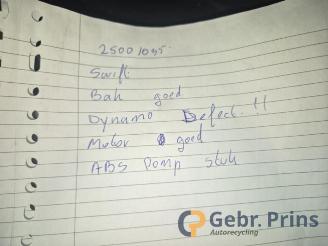 25001095.
Swift
Bak goed
Dynamo Defect !!
Motor goed
ABS Pomp stuk
Gebr. Prins
Autorecycling